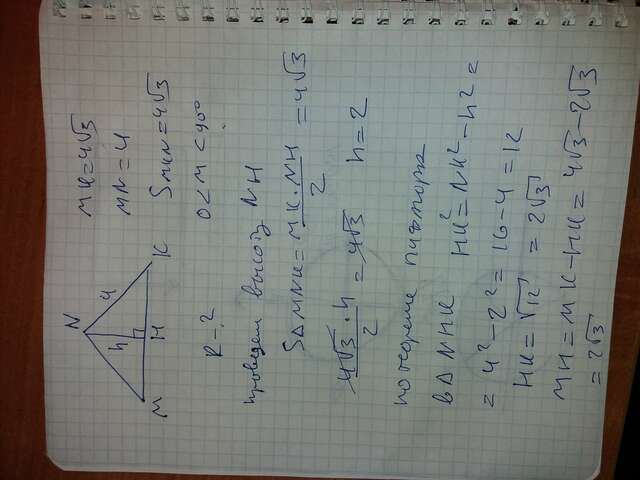 N
h
4
M
H
K
MK=4√3
MN=4
S MKN=4√3
0<M<90°
R-?
проведем высоту NH
S△MNK=MK·NH/2=4√3
4√3·h/2=4√3 h=2
по теореме пифагора
в△NHK HK²=NK²-h²=
=4²-2²=16-4=12
HK=√12=2√3
MH=MK-HK=4√3-2√3
=2√3